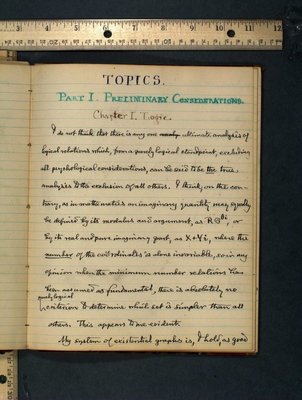 TOPICS.
PART I. PRELIMINARY CONSIDERATIONS.
Chapter I. Logic.
I do not think that there is any one ultimate analysis of
logical relations which, from a purely logical standpoint, excluding
all psychological considerations, can be said to be the true
analysis to the exclusion of all others. I think, on the con-
trary, as in mathematics an imaginary quantity may equally
be defined by its modulus and argument, as R⊙^θi, or
by its real and pure imaginary part, as X+Yi, where the
number of the coördinates is alone invariable, so in my
opinion when the minimum number relations has
been assumed as fundamental, there is absolutely no
purely logical
criterion to determine which set is simpler than all
others. This appears to me evident.
My system of existential graphs is, I hold, as good